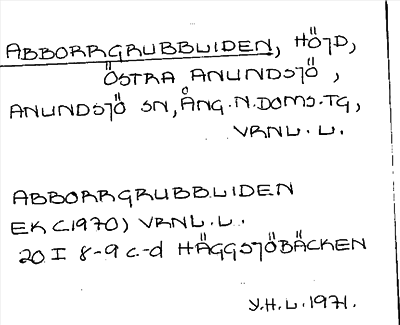 ABBORRGRUBBLIDEN, HÖJD,
ÖSTRA ANUNDSJÖ,
ANUNDSJÖ SN, ÅNG.N.DOMS.TG,
VRNL.L.
ABBORRGRUBBLIDEN
EK (1970) VRNL.L.
20 I 8-9 c-d HÄGGSJÖBÄCKEN
Y.H.L.1971.